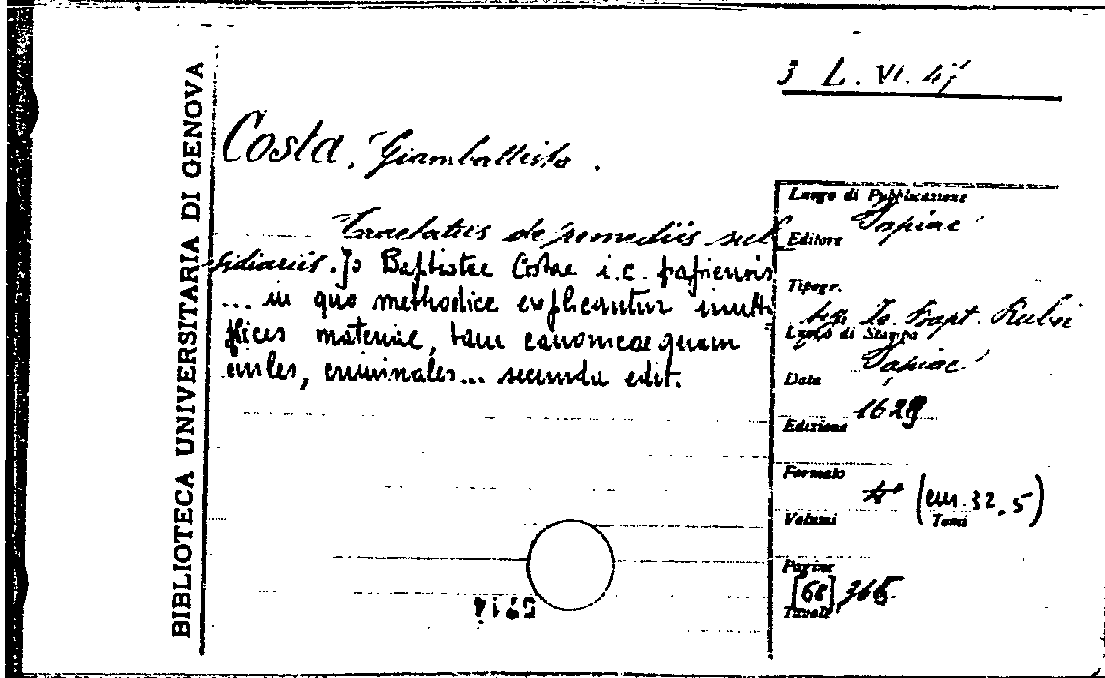 3 L. VI. 47
BIBLIOTECA UNIVERSITARIA DI GENOVA
Costa, Giambattista.
Tractatus de remediis sub
sidiariis. Jo Baptistae Costae i.c. papiensis
... in quo methodice explicantur multi
plices materiae, tam canonicae quam
civiles, criminales... secunda edit.
Luogo di Pubblicazione
Papiae
Editore
Tipogr.
Jo. Bapt. Rubei
Luogo di Stampa
Papiae
Data
1629
Edizione
Formato
4° (cm. 32,5)
Volumi Tomi
Pagine
[68], 365
Tavole